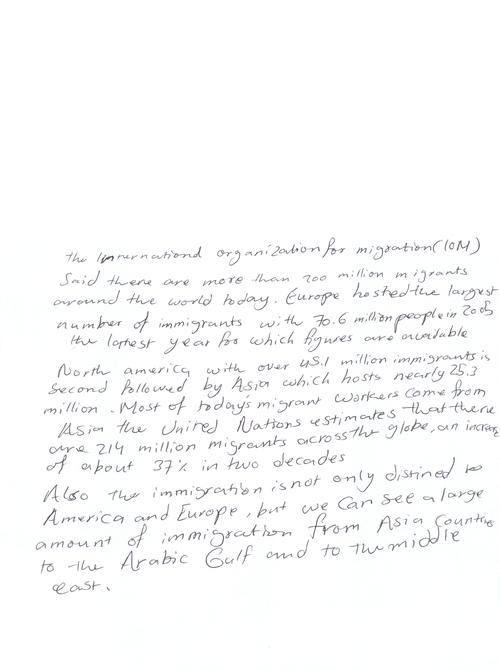 the Innernational organization for migration (IOM)
Said there are more than 200 million migrants
around the world today. Europe hosted the largest
number of immigrants with 70.6 million people in 2005
the latest year for which figures are available
North america with over 45.1 million immigrants is
Second followed by Asia which hosts nearly 25.3
million . Most of today's migrant workers come from
Asia the United Nations estimates that there
are 214 million migrants across the globe, an increas
of about 37% in two decades
Also the immigration is not only distined to
America and Europe, but we Can see a large
amount of immigration from Asia Countries
to the Arabic Gulf and to the middle
east.